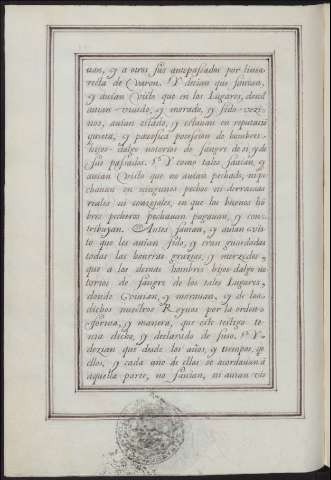 uan, y a otros sus antepasados por linea
recta de Varon. Y deçian que sauian,
y auian visto que en los Lugares, dond
auian viuido, y morado, y sido vezi-
nos, auian estado, y estauan en reputaçiõ
quieta, y paçifica posesion de hombres
hijos-dalgo notorios de sangre de si, y de
sus pasados. Y como tales sauian, y
auian visto que no auian pechado, ni pe
chauan en ningunos pechos ni derramas
reales ni conçejales, en que los buenos hõ
bres pecheros pechauan pagauan, y con-
tribuyan. Antes sauian, y auian vis-
to que les auian sido, y eran guardadas
todas las honrras graçias, y merçedes,
que a los demas hombres hijos dalgo no
torios de sangre de los tales Lugares,
donde viuian, y morauan, y de los
dichos nuestros Reynos por la orden
forma, y manera, que este testigo te
nia dicho, y declarado de suso. Y
dezian que desde los años, y tiempos, q̃
ellos, y cada vno de ellas se acordauan a
aquella parte, no sauian, ni auian vis